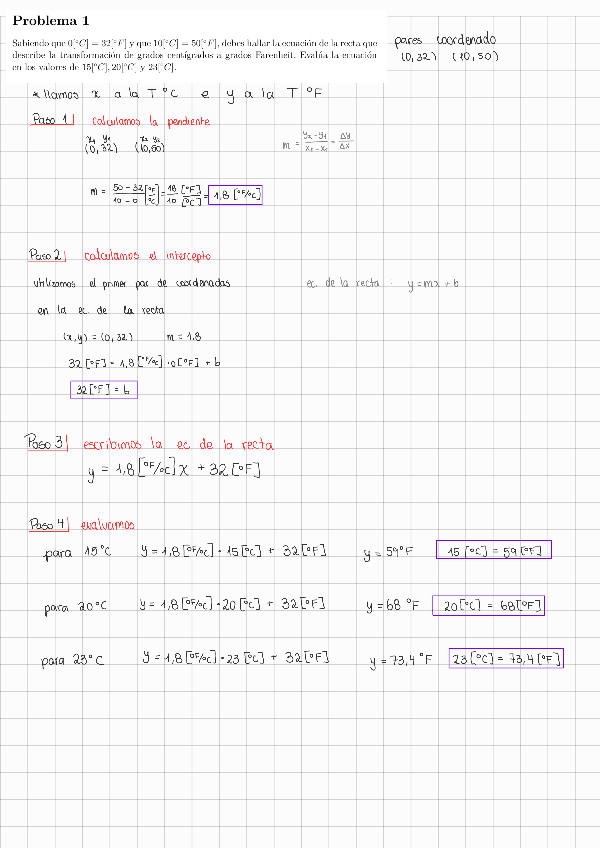 Problema 1
Sabiendo que 0[°C] = 32[°F] y que 10[°C] = 50[°F], debes hallar la ecuación de la recta que
describe la transformación de grados centígrados a grados Farenheit. Evalúa la ecuación
en los valores de 15[°C], 20[°C] y 23[°C].
pares coordenado
(0,32) (10,50)
* llamos x a la T °C e y a la T °F
Paso 1 calculamos la pendiente
x₁ y₁ x₂ y₂
(0,32) (10,50)
m = y₂-y₁/x₂-x₁ = Δy/Δx
m = 50-32/10-0 [°F]/[°C] = 18/10 [°F]/[°C] = 1,8 [°F/°C]
Paso 2 calculamos el intercepto
utilizamos el primer par de coordenadas
ec. de la recta : y = mx + b
en la ec. de la recta
(x,y) = (0,32) m = 1.8
32[°F] = 1,8[°F/°C] · 0[°F] + b
32[°F] = b
Paso 3 escribimos la ec de la recta
y = 1,8[°F/°C]x + 32[°F]
Paso 4 evaluamos
para 15°C y = 1,8[°F/°C] · 15[°C] + 32[°F] y = 59°F 15[°C] = 59[°F]
para 20°C y = 1,8[°F/°C] · 20[°C] + 32[°F] y = 68 °F 20[°C] = 68[°F]
para 23°C y = 1,8[°F/°C] · 23[°C] + 32[°F] y = 73,4 °F 23[°C] = 73,4[°F]